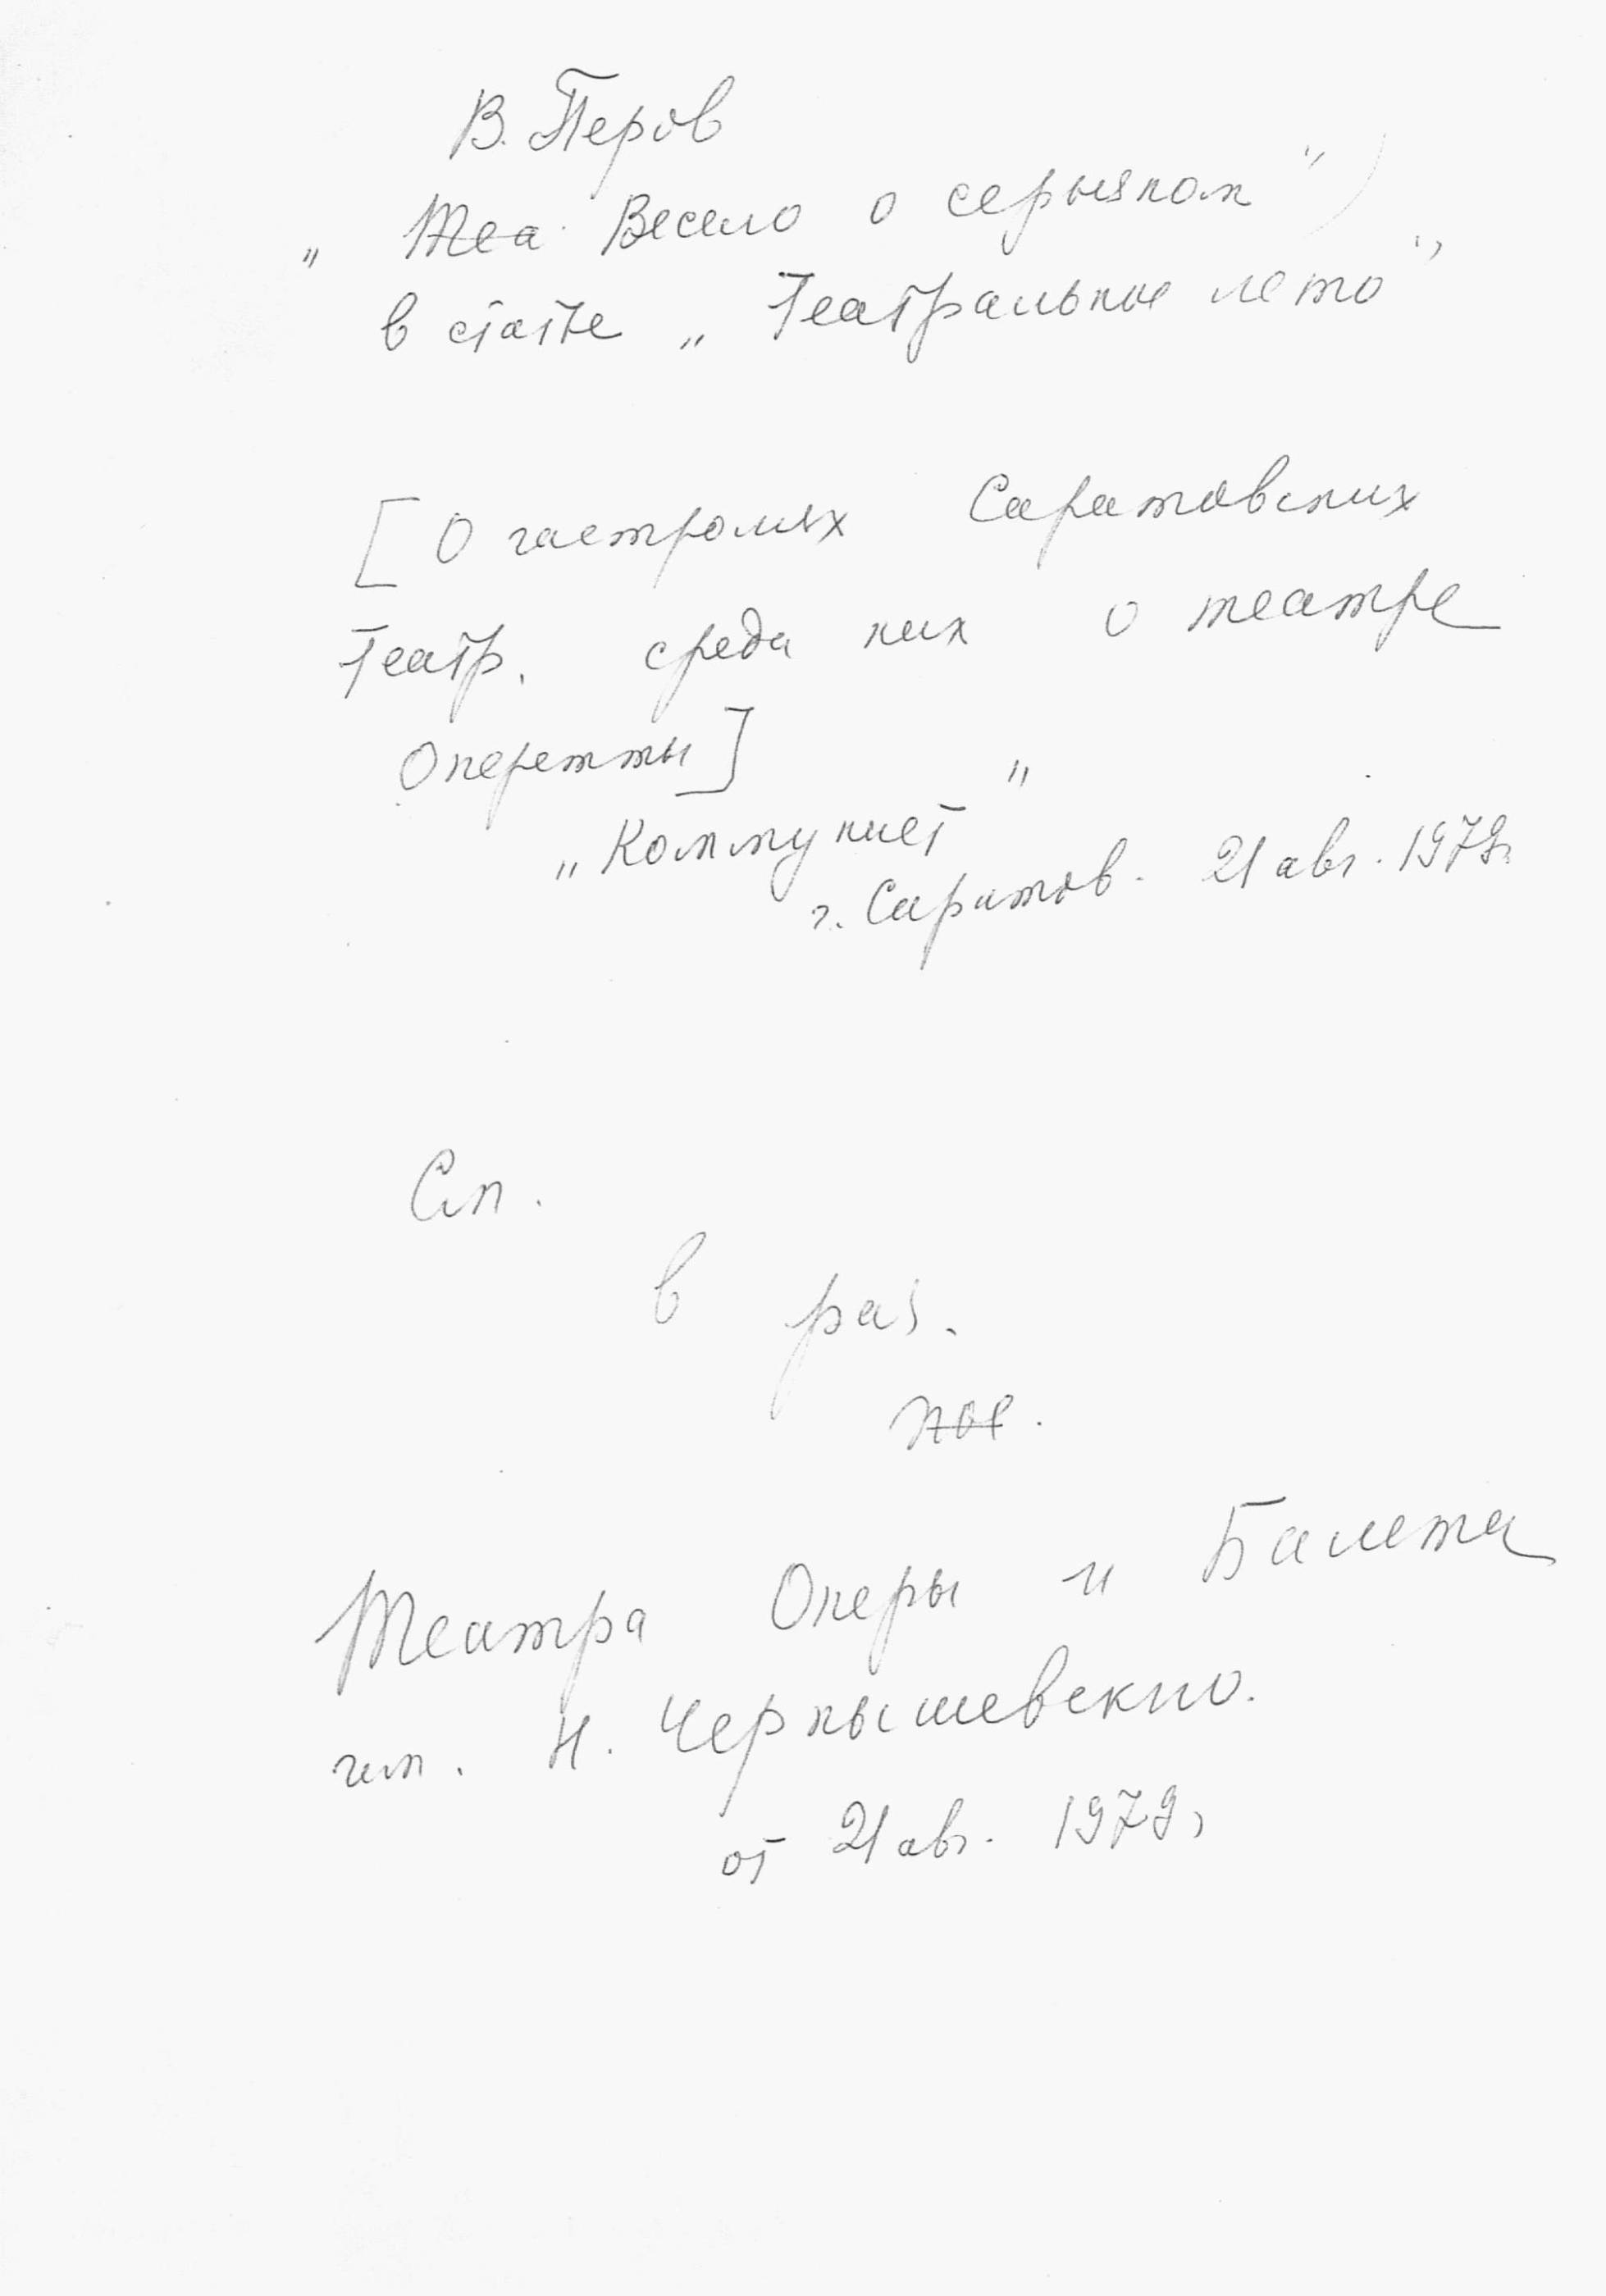 В. Перов
„ Теа. Весело о серьезном "
в статье „ Театральное лето "
[ О гастролях Саратовских
театр. среди них о театре
Оперетты ]
„ Коммунист "
г. Саратов. 21 авг. 1979г.
См.
в раз.
Театра Оперы и Балета
им. Н. Чернышевского.
от 21 авг. 1979г